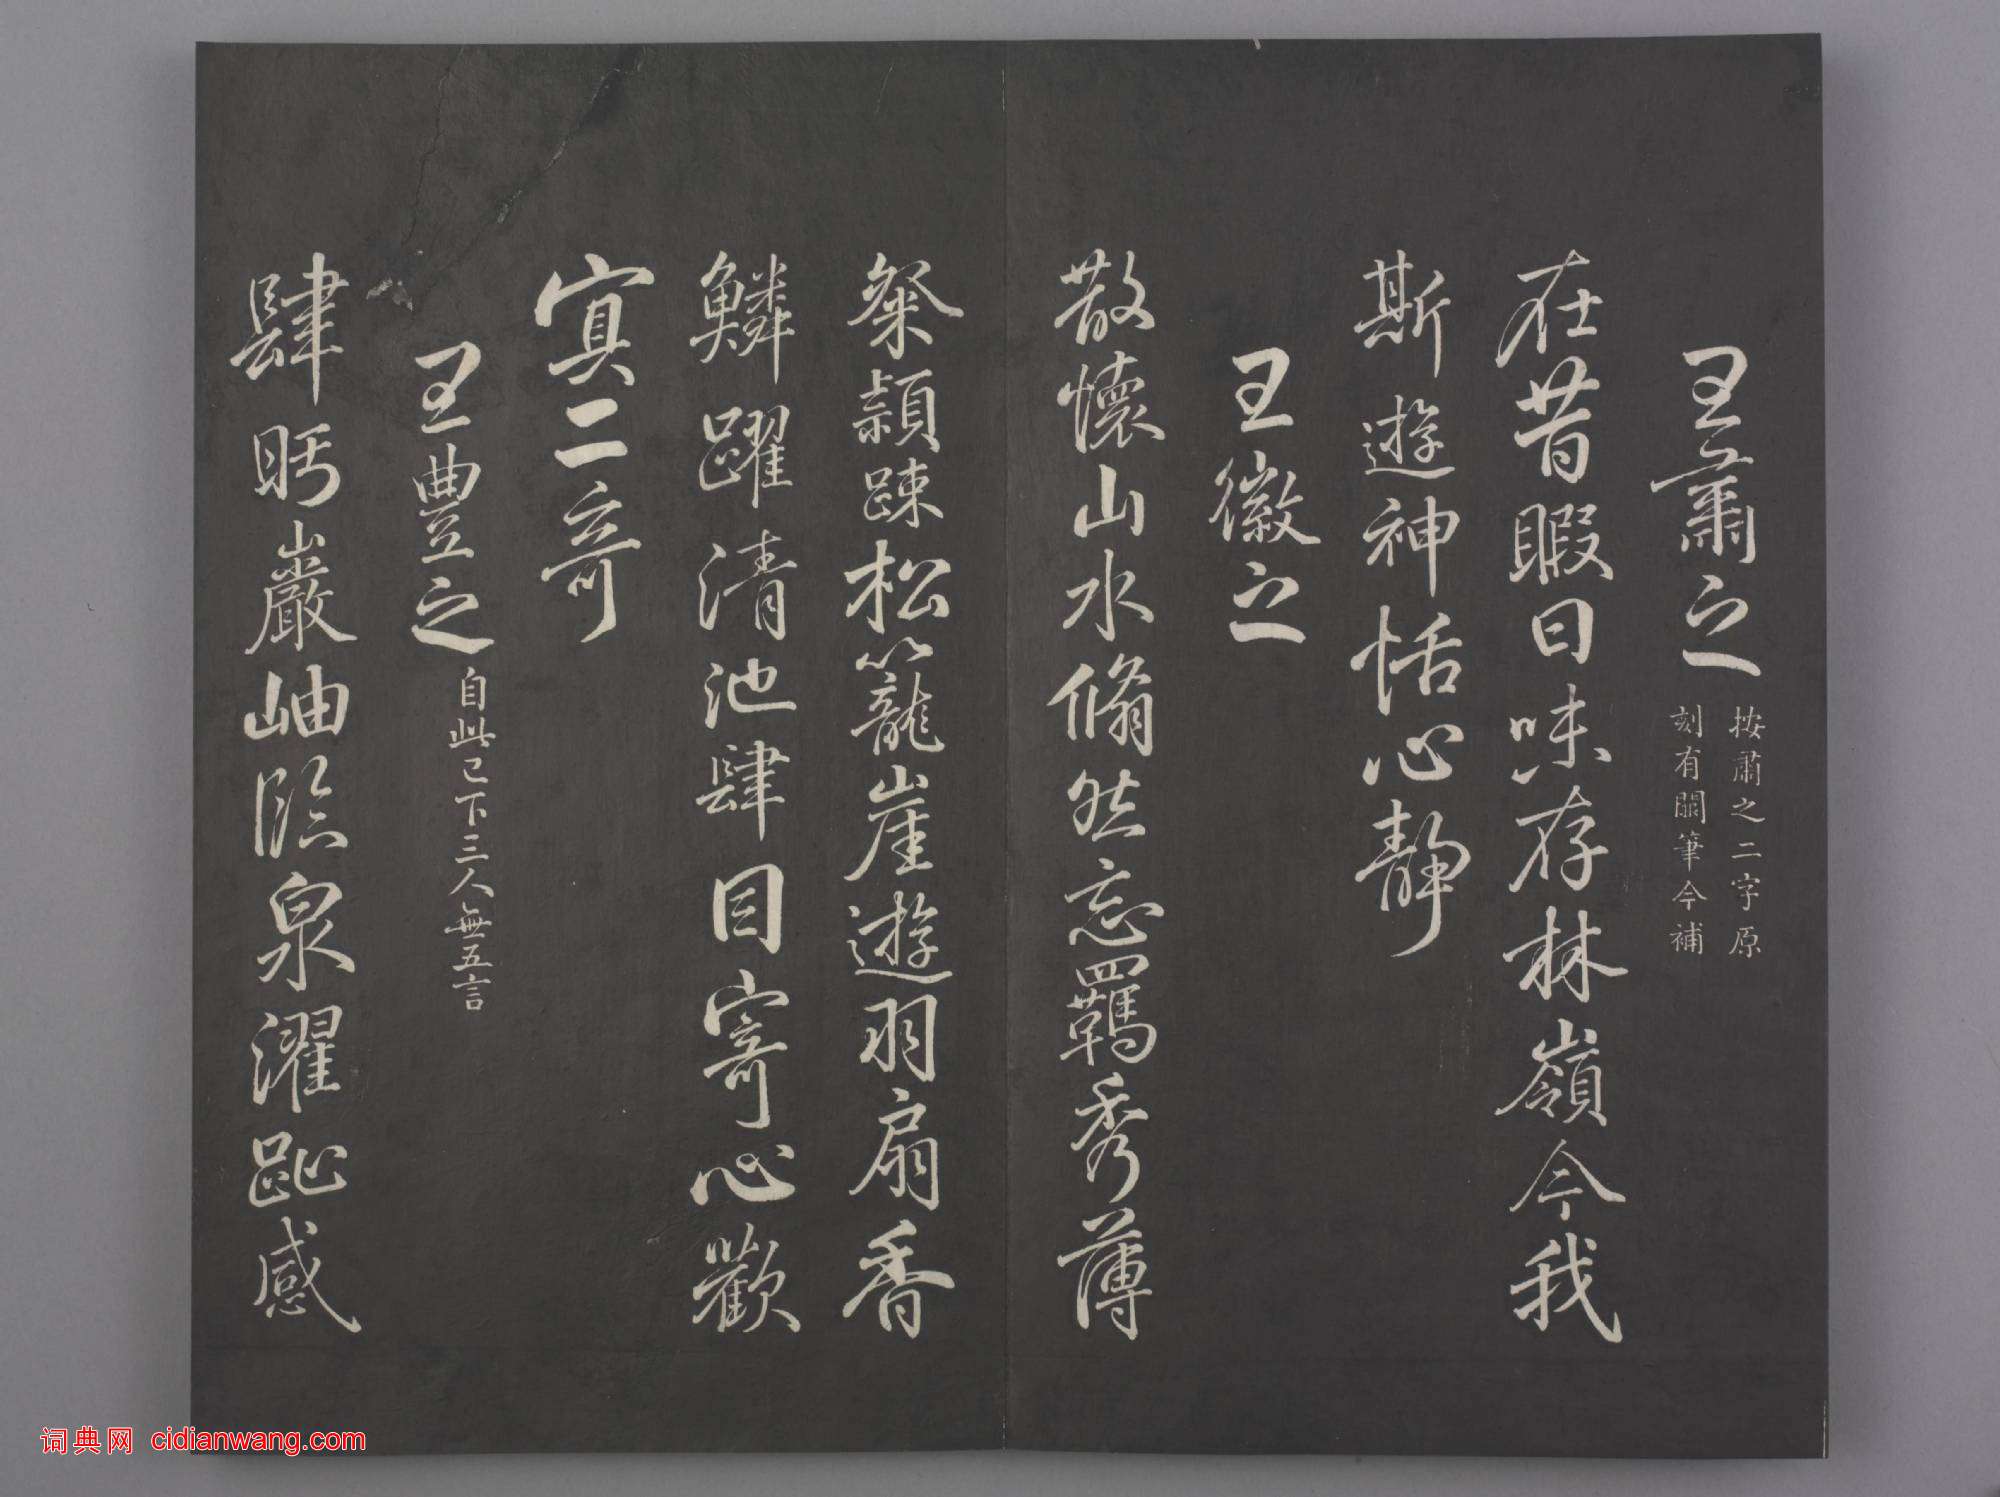 王肅之
按肅之二字原
刻有闕筆今補
在昔暇日味存林嶺今我
斯遊神恬心靜
王徽之
散懷山水翛然忘羈秀薄
粲頴踈松籠崖遊羽扇香
鱗躍清池肆目寄心歡
寘二奇
王豊之
自此已下三人無五言
肆眄巖岫臨泉濯趾感
词典网 cidianwang.com